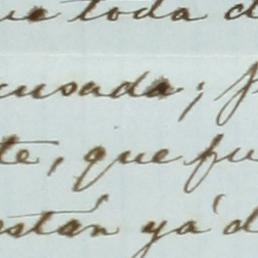 ue toda d
cusada;
te, que fu
están yá d